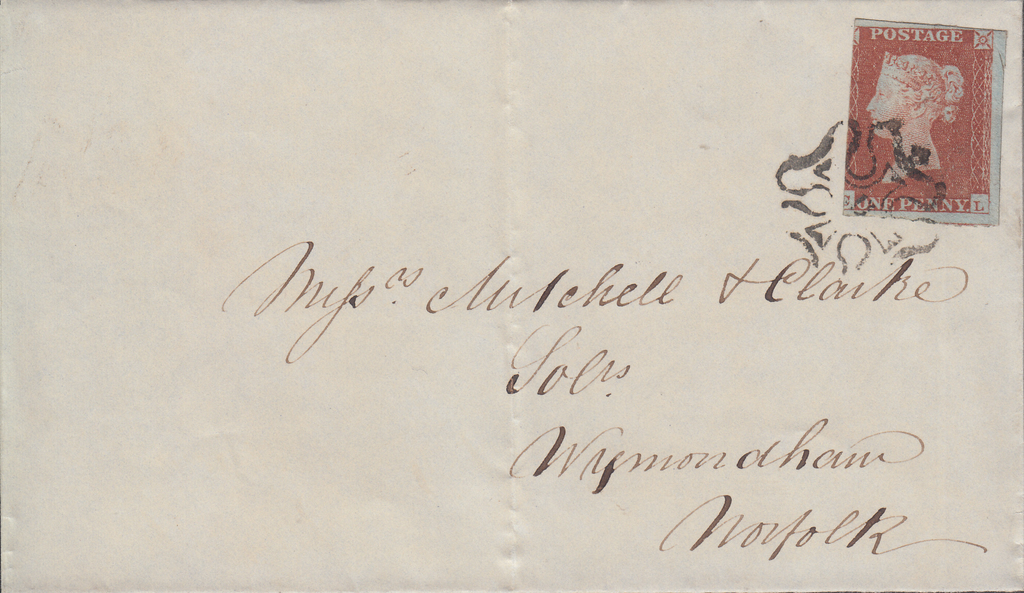 POSTAGE
ONE PENNY L
Messrs. Mitchell & Clarke
Solrs.
Wymondham
Norfolk